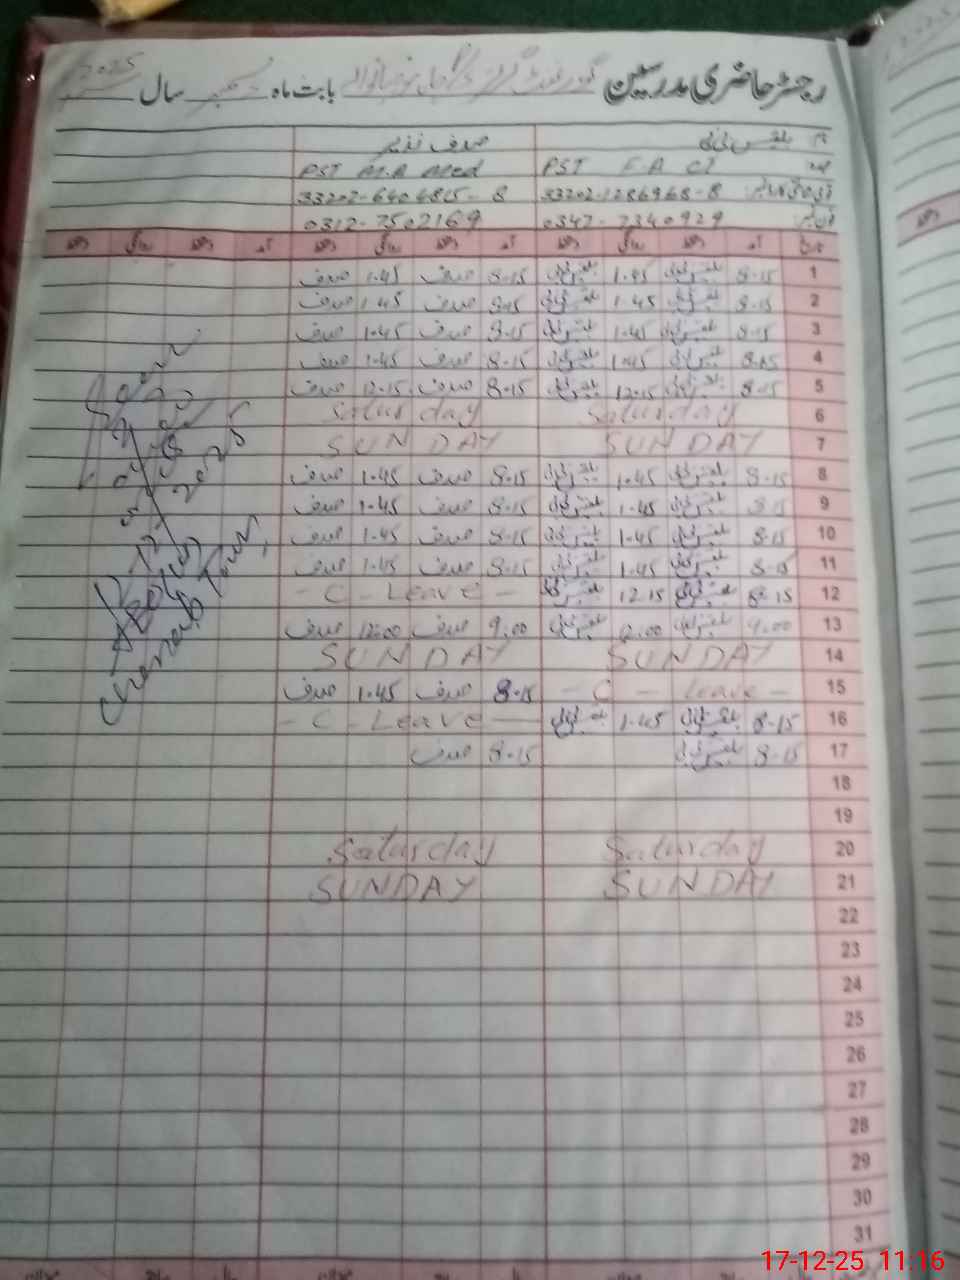 رجسٹر حاضری مدرسین گورنمنٹ گرلز بابت ماہ دسمبر سال 2025
نام بلقیس بی بی صدف نذیر
عہدہ PST F.A CT PST M.A Med
33202-1286968-8 33202-6404815-8
فون نمبر 0347-7340929 0312-7502169
تاریخ آمد دستخط روانگی دستخط آمد دستخط روانگی دستخط آمد دستخط روانگی دستخط دستخط
1 8-15 بلقیس بی بی 1.45 بلقیس بی بی 8-15 صدف 1.45 صدف
2 8-15 بلقیس بی بی 1.45 بلقیس بی بی 8-15 صدف 1.45 صدف
3 8-15 بلقیس بی بی 1.45 بلقیس بی بی 8-15 صدف 1.45 صدف
4 8-15 بلقیس بی بی 1.45 بلقیس بی بی 8-15 صدف 1.45 صدف
5 8-15 بلقیس بی بی 12.15 بلقیس بی بی 8-15 صدف 12.15 صدف
6 Saturday Saturday
7 SUNDAY SUNDAY
8 8-15 بلقیس بی بی 1.45 بلقیس بی بی 8-15 صدف 1.45 صدف
9 8-15 بلقیس بی بی 1.45 بلقیس بی بی 8-15 صدف 1.45 صدف
10 8-15 بلقیس بی بی 1.45 بلقیس بی بی 8-15 صدف 1.45 صدف
11 8-15 بلقیس بی بی 1.45 بلقیس بی بی 8-15 صدف 1.45 صدف
12 8-15 بلقیس بی بی 12.15 بلقیس بی بی - C - Leave -
13 9.00 بلقیس بی بی 12.00 بلقیس بی بی 9.00 صدف 12.00 صدف
14 SUNDAY SUNDAY
15 - C - Leave - 8-15 صدف 1.45 صدف
16 8-15 بلقیس بی بی 1.45 بلقیس بی بی - C - Leave -
17 8-15 بلقیس بی بی 8-15 صدف
18
19
20 Saturday Saturday
21 SUNDAY SUNDAY
22
23
24
25
26
27
28
29
30
31
2025
Chenab
17-12-25 11:16